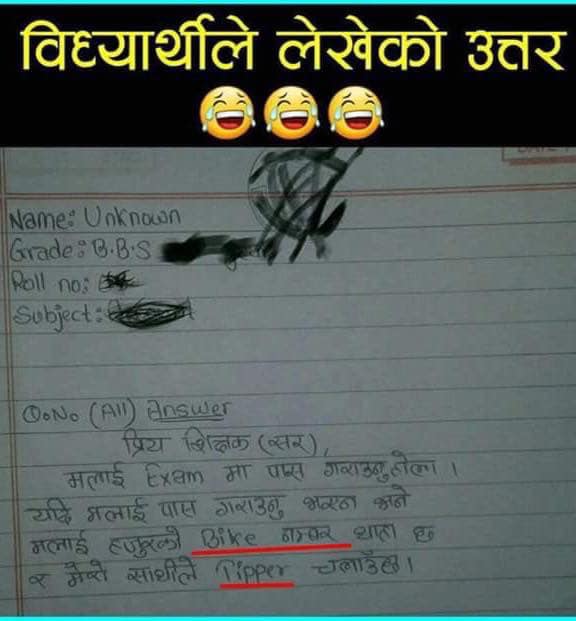 विध्यार्थीले लेखेको उत्तर
Name: Unknown
Grade: B.B.S
Roll no:
Subject:
Q.No (All) Answer
प्रिय शिक्षक (सर),
मलाई Exam मा पास गराउनु होला ।
यदि मलाई पास गराउनु भएन भने
मलाई हजुरको Bike नम्बर थाहा छ
र मेरो साथीले Tipper चलाउँछ।